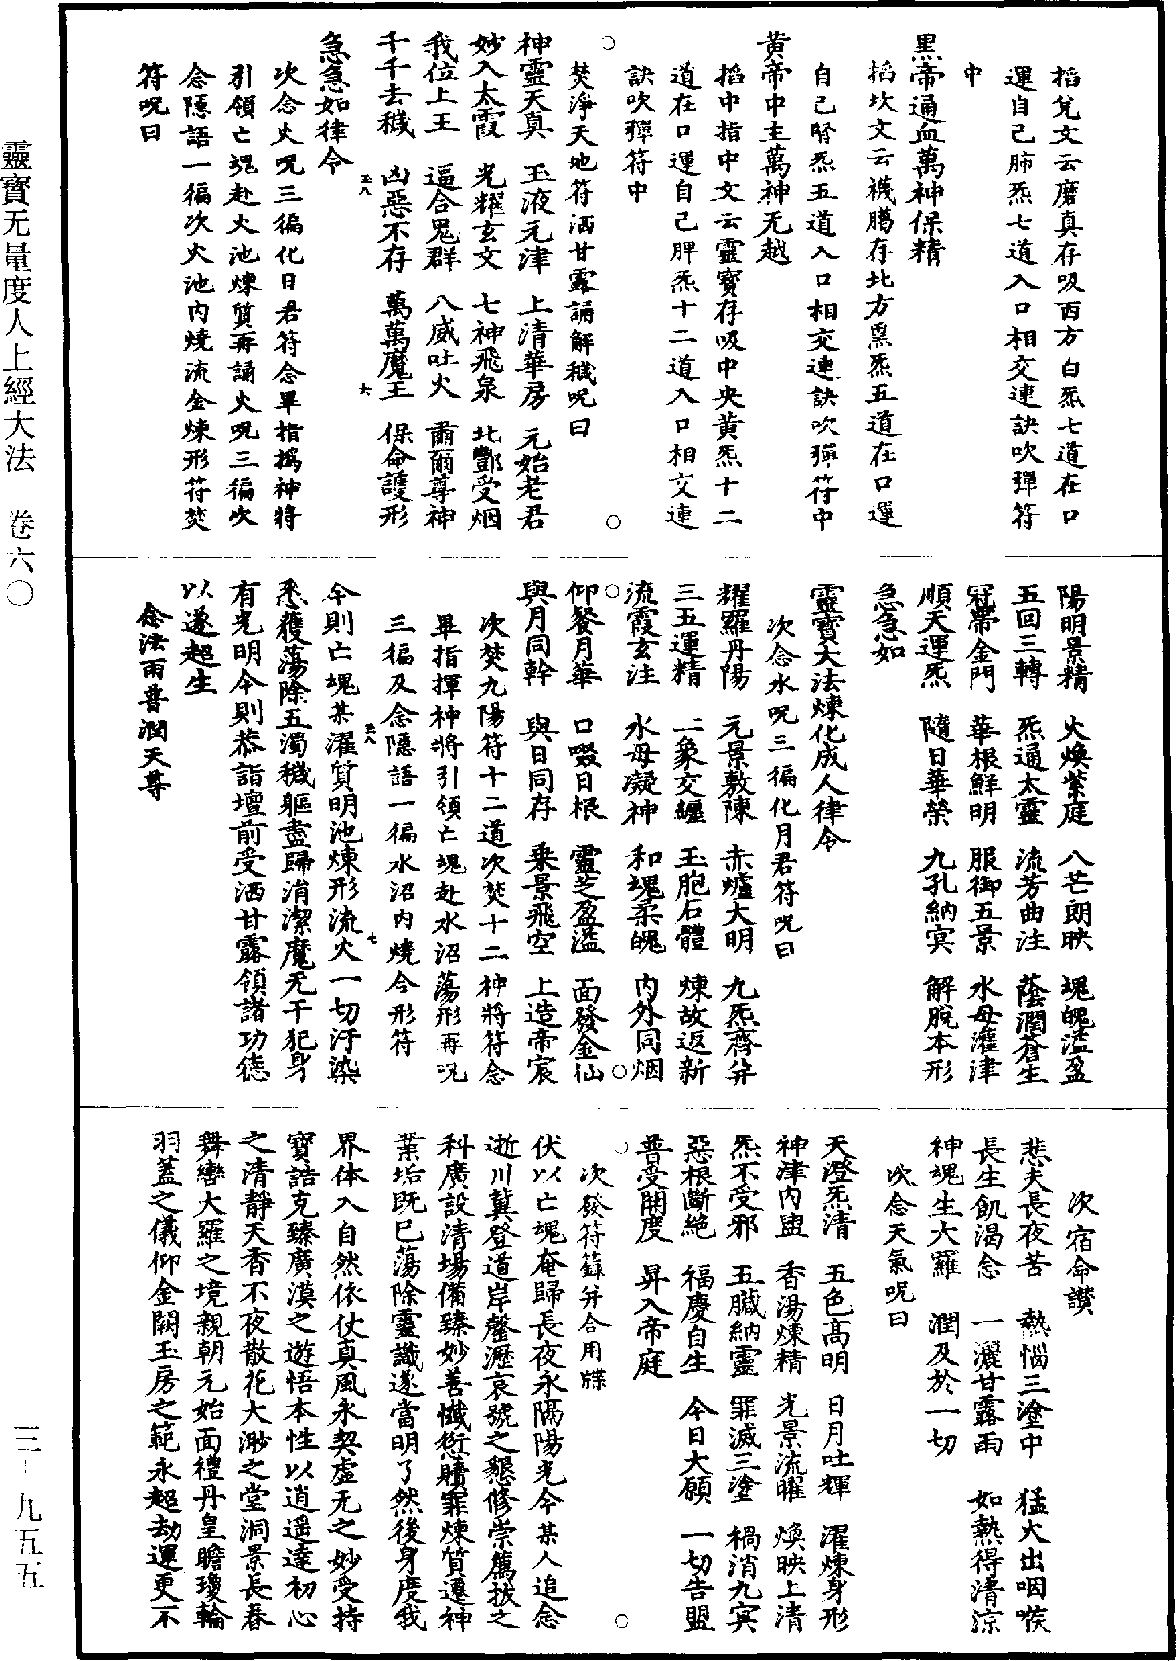 靈寶无量度人上經大法　卷六〇
三－九五五
掐兌文云磨真存吸西方白炁七道在口
運自己肺炁七道入口相交連訣吹彈符
中
黑帝通血萬神保精
掐坎文云襪臈存北方黑炁五道在口運
自己腎炁五道入口相交連訣吹彈符中
黃帝中主萬神无越
掐中指中文云靈寶存吸中央黃炁十二
道在口運自己脾炁十二道入口相交連
訣吹彈符中
焚淨天地符洒甘露誦解穢呪曰
神靈天真　玉液元津　上清華房　元始老君
妙入太霞　光耀玄文　七神飛泉　北酆受烟
我位上王　逼合鬼群　八威吐火　爾爾尊神
千千去穢　凶惡不存　萬萬魔王　保命護形
急急如律令
次念火呪三徧化日君符念畢指撝神將
引領亡魂赴火池煉質再誦火呪三徧次
念隱語一徧次火池內燒流金煉形符焚
符呪曰
陽明景精　火煥紫庭　八芒朗映　魂魄溢盈
五回三轉　炁通太靈　流芳曲注　蔭潤蒼生
冠帶金門　華根鮮明　服御五景　水母灌津
順天運炁　隨日華榮　九孔納㝠　解脫本形
急急如
靈寶大法煉化成人律令
次念水呪三徧化月君符呪曰
耀羅丹陽　元景敷陳　赤爐大明　九炁齊并
三五運精　二象交纏　玉胞石體　煉故返新
流霞玄注　水母凝神　和魂柔魄　內外同烟
仰餐月華　口啜日根　靈芝盈溢　面發金仙
與月同幹　與日同存　乘景飛空　上造帝宸
次焚九陽符十二道次焚十二神將符念
畢指揮神將引領亡魂赴水沼蕩形再呪
三徧及念隱語一徧水沼內燒合形符
今則亡魂某濯質明池煉形流火一切汙染
悉獲蕩除五濁穢軀盡歸消潔魔无干犯身
有光明今則恭詣壇前受洒甘露領諸功德
以遂超生
念法雨普潤天尊
次宿命讚
悲夫長夜苦　熱惱三塗中　猛火出咽喉
長生飢渴念　一灑甘露雨　如熱得清涼
神魂生大羅　潤及於一切
次念天氣呪曰
天澄炁清　五色高明　日月吐輝　濯煉身形
神津內盥　香湯煉精　光景流曜　煥映上清
炁不受邪　五臟納靈　罪滅三塗　禍消九㝠
惡根斷絕　福慶自生　今日大願　一切告盟
普受開度　昇入帝庭
次發符籙并合用牒
伏以亡魂奄歸長夜永隔陽光今某人追念
逝川冀登道岸罄瀝哀號之懇修崇薦拔之
科廣設清場備臻妙善懺愆贖罪煉質遷神
業垢既已蕩除靈識遂當明了然後身度我
界体入自然依仗真風永契虛无之妙受持
寶誥克臻廣漠之遊悟本性以逍遥達初心
之清靜天香不夜散花大渺之堂洞景長春
舞轡大羅之境親朝元始面禮丹皇瞻瓊輪
羽蓋之儀仰金闕玉房之範永超劫運更不